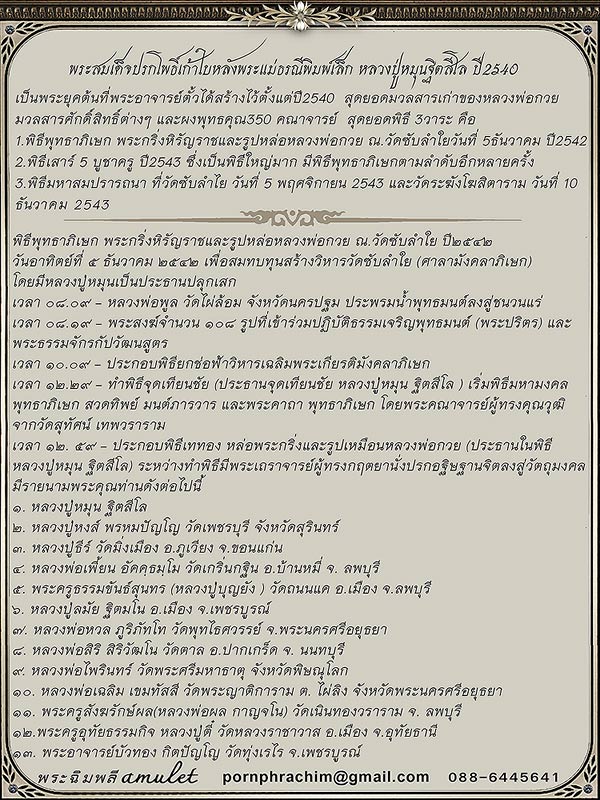 พระสมเด็จปรกโพธิ์เก้าใบหลังพระแม่ธรณีพิมพ์เล็ก หลวงปู่หมุนฐิตสีโล ปี2540
เป็นพระยุคต้นที่พระอาจารย์ตั้วได้สร้างไว้ตั้งแต่ปี2540 สุดยอดมวลสารเก่าของหลวงพ่อกวย
มวลสารศักดิ์สิทธิ์ต่างๆ และผงพุทธคุณ350 คณาจารย์ สุดยอดพิธี 3วาระ คือ
1.พิธีพุทธาภิเษก พระกริ่งหิรัญราชและรูปหล่อหลวงพ่อกวย ณ.วัดซับลำใยวันที่ 5ธันวาคม ปี2542
2.พิธีเสาร์ 5 บูชาครู ปี2543 ซึ่งเป็นพิธีใหญ่มาก มีพิธีพุทธาภิเษกตามลำดับอีกหลายครั้ง
3.พิธีมหาสมปรารถนา ที่วัดซับลำไย วันที่ 5 พฤศจิกายน 2543 และวัดระฆังโฆสิตาราม วันที่ 10
ธันวาคม 2543
พิธีพุทธาภิเษก พระกริ่งหิรัญราชและรูปหล่อหลวงพ่อกวย ณ.วัดซับลำใย ปี๒๕๔๒
วันอาทิตย์ที่ ๕ ธันวาคม ๒๕๔๒ เพื่อสมทบทุนสร้างวิหารวัดซับลำใย (ศาลามังคลาภิเษก)
โดยมีหลวงปู่หมุนเป็นประธานปลุกเสก
เวลา ๐๘.๐๙ – หลวงพ่อพูล วัดไผ่ล้อม จังหวัดนครปฐม ประพรมน้ำพุทธมนต์ลงสู่ชนวนแร่
เวลา ๐๘.๑๙ – พระสงฆ์จำนวน ๑๐๘ รูปที่เข้าร่วมปฏิบัติธรรมเจริญพุทธมนต์ (พระปริตร) และ
พระธรรมจักรกัปวัฒนสูตร
เวลา ๑๐.๐๙ – ประกอบพิธียกช่อฟ้าวิหารเฉลิมพระเกียรติมังคลาภิเษก
เวลา ๑๒.๒๙ – ทำพิธีจุดเทียนชัย (ประธานจุดเทียนชัย หลวงปู่หมุน ฐิตสีโล ) เริ่มพิธีมหามงคล
พุทธาภิเษก สวดทิพย์ มนต์ภารวาร และพระคาถา พุทธาภิเษก โดยพระคณาจารย์ผู้ทรงคุณวุฒิ
จากวัดสุทัศน์ เทพวราราม
เวลา ๑๒. ๕๙ – ประกอบพิธีเททอง หล่อพระกริ่งและรูปเหมือนหลวงพ่อกวย (ประธานในพิธี
หลวงปู่หมุน ฐิตสีโล) ระหว่างทำพิธีมีพระเถราจารย์ผู้ทรงกฤตยานั่งปรกอฐิษฐานจิตลงสู่วัตถุมงคล
มีรายนามพระคุณท่านดังต่อไปนี้
๑. หลวงปู่หมุน ฐิตสีโล
๒. หลวงปู่หงส์ พรหมปัญโญ วัดเพชรบุรี จังหวัดสุรินทร์
๓. หลวงปู่ธีร์ วัดมิ่งเมือง อ.ภูเวียง จ.ขอนแก่น
๔. หลวงพ่อเพี้ยน อัคคฺธมฺโม วัดเกริ่นกฐิน อ.บ้านหมี่ จ. ลพบุรี
๕. พระครูธรรมขันธ์สุนทร (หลวงปู่บุญยัง ) วัดถนนแค อ.เมือง จ.ลพบุรี
๖. หลวงปู่ลมัย ฐิตมโน อ.เมือง จ.เพชรบูรณ์
๗. หลวงพ่อหวล ภูริภัทโท วัดพุทไธศวรรย์ จ.พระนครศรีอยุธยา
๘. หลวงพ่อสิริ สิริวัฒโน วัดตาล อ.ปากเกร็ด จ. นนทบุรี
๙. หลวงพ่อไพรินทร์ วัดพระศรีมหาธาตุ จังหวัดพิษณุโลก
๑๐. หลวงพ่อเฉลิม เขมทัสสี วัดพระญาติการาม ต. ไผ่ลิง จังหวัดพระนครศรีอยุธยา
๑๑. พระครูสังฆรักษ์ผล(หลวงพ่อผล กาญจโน) วัดเนินทองวราราม จ. ลพบุรี
๑๒.พระครูอุทัยธรรมกิจ หลวงปู่ตี๋ วัดหลวงราชาวาส อ.เมือง จ.อุทัยธานี
๑๓. พระอาจารย์บัวทอง กิตปัญโญ วัดทุ่งเรไร จ.เพชรบูรณ์
พระฉิมพลี amulet pornphrachim@gmail.com 088-6445641